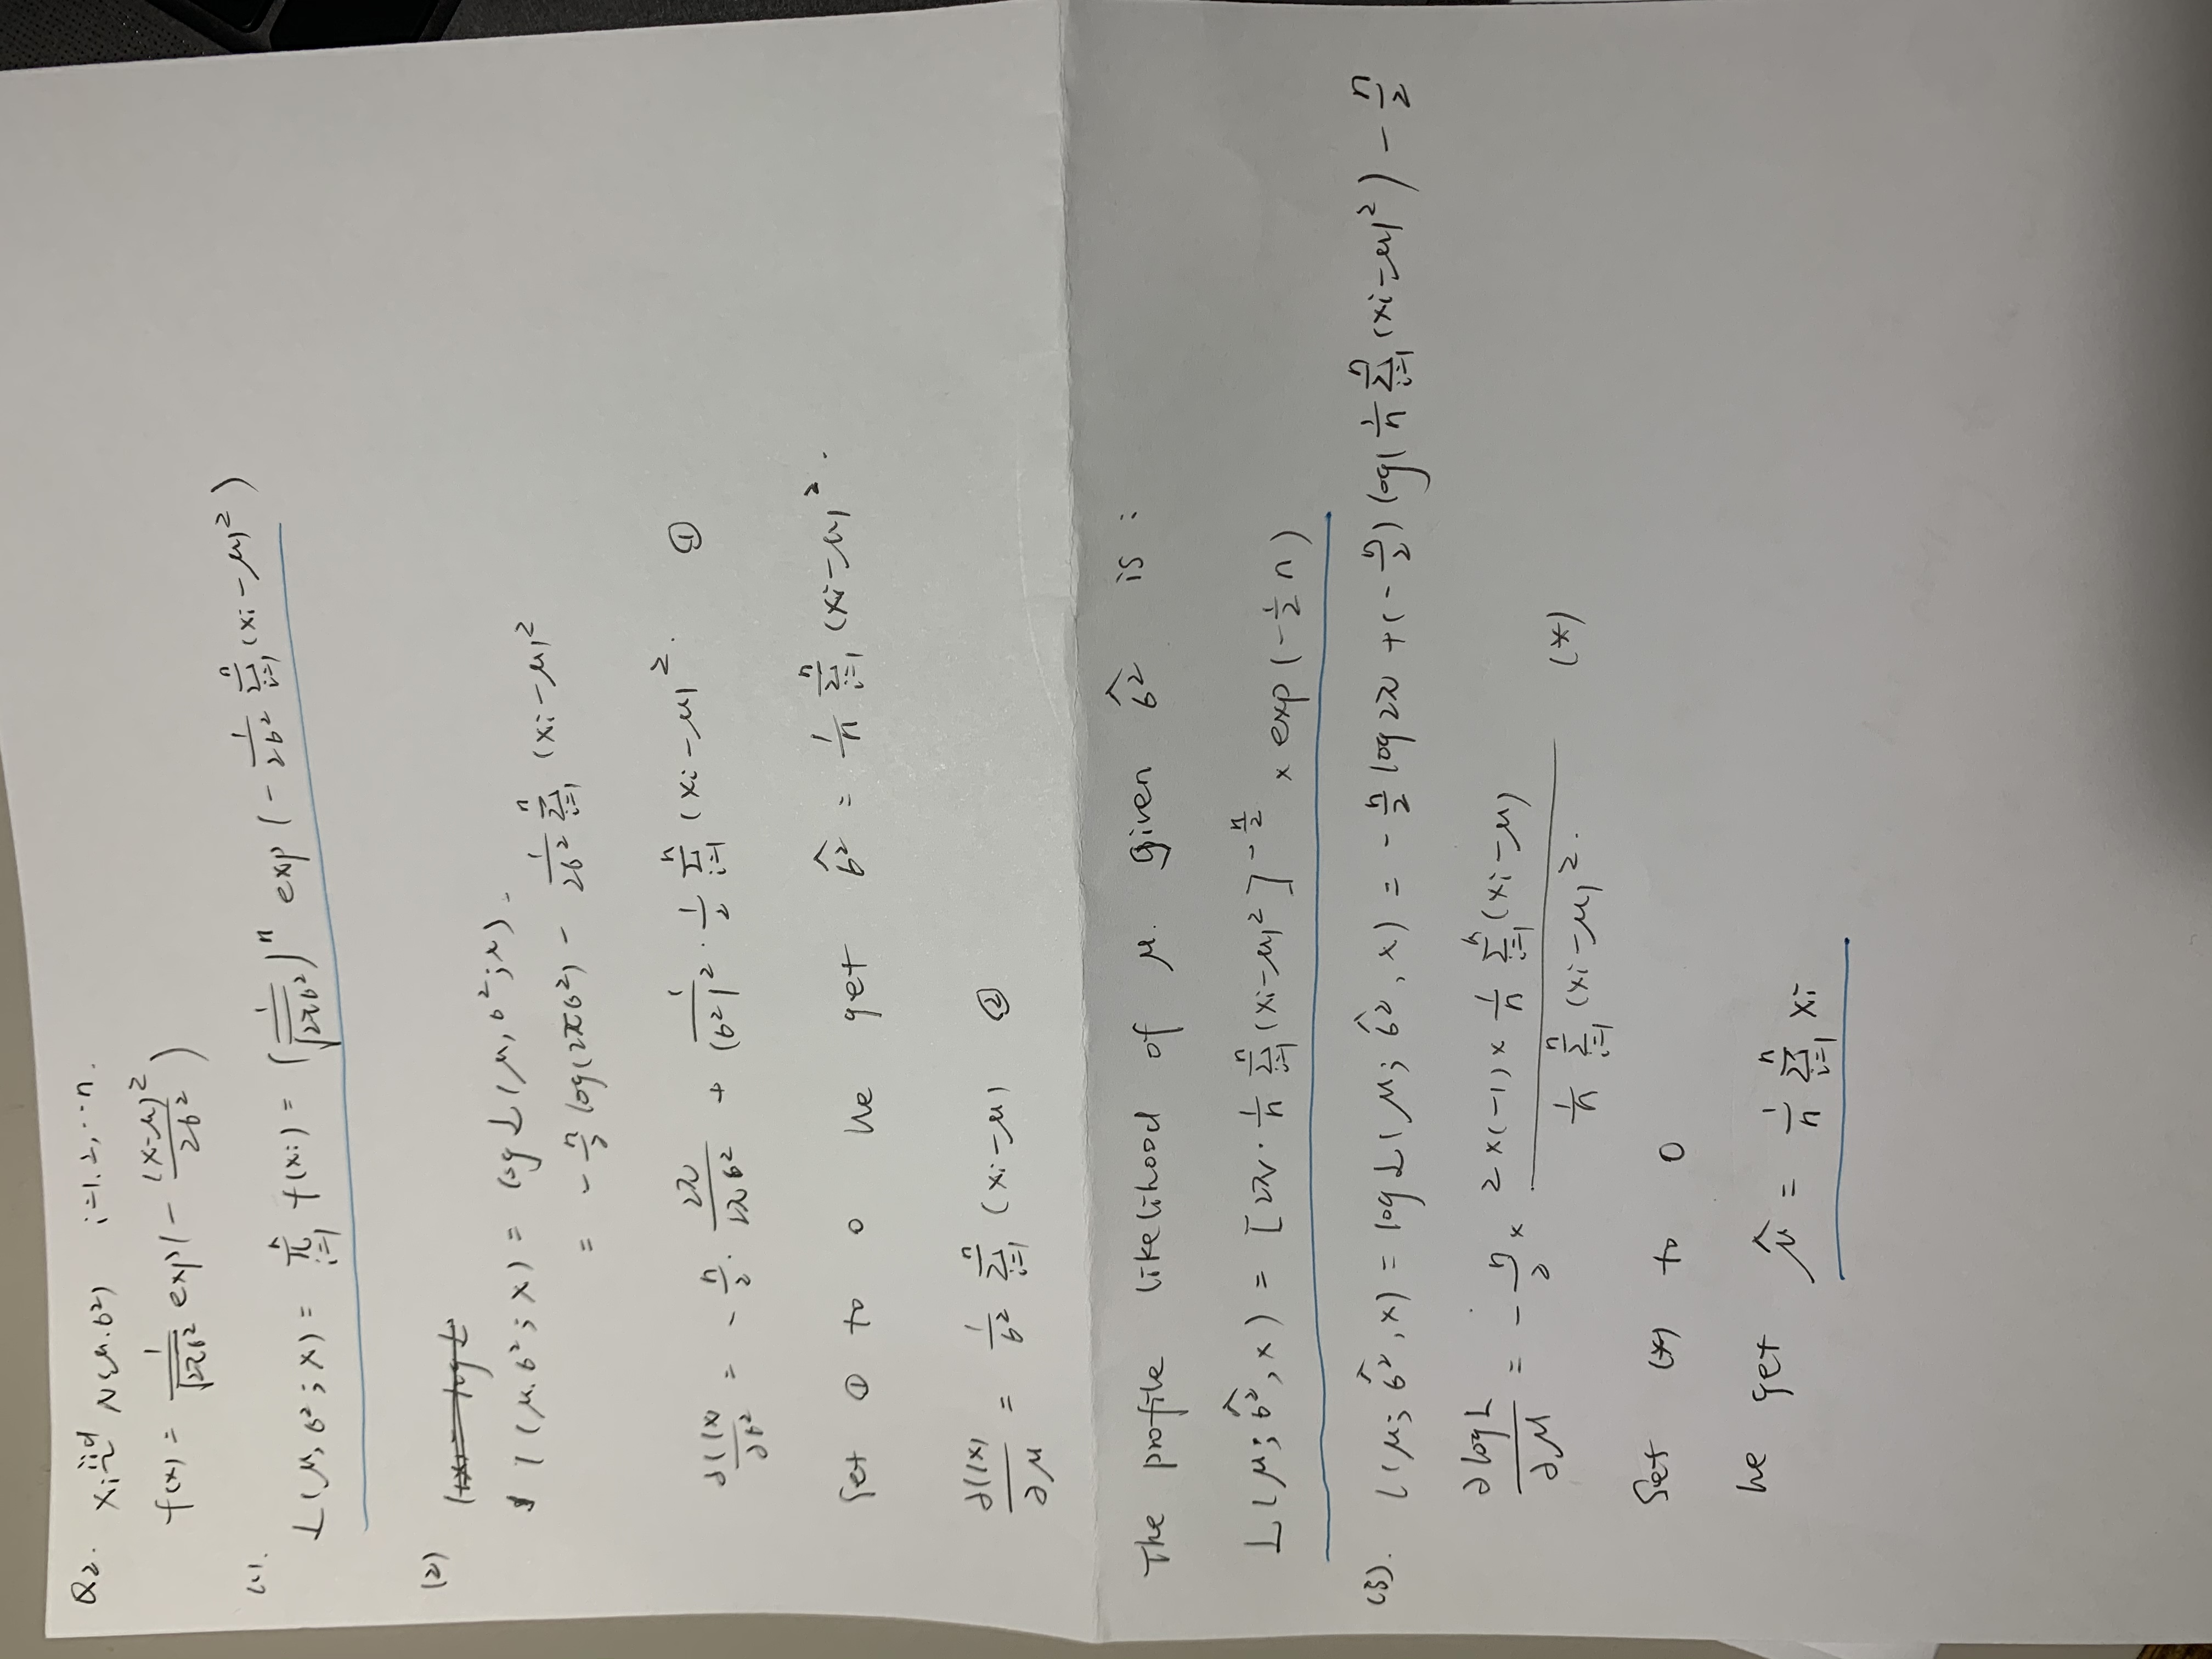 Q2. Xi iid~ N(μ.σ²) i=1.2,...n.
f(x) = 1/√(2πσ²) exp(- (x-μ)²/2σ²)
(1). L(μ,σ²;X) = π_{i=1}^{n} f(xi) = (1/√(2πσ²))^n exp(- 1/2σ² Σ_{i=1}^{n} (xi-μ)²)
(2)
l(μ.σ²;X) = log L(μ,σ²;x).
= - n/2 log(2πσ²) - 1/2σ² Σ_{i=1}^{n} (xi-μ)²
∂l(x)/∂σ² = - n/2 · 2π/2πσ² + 1/(σ²)² · 1/2 Σ_{i=1}^{n} (xi-μ)². ①
Set ① to 0 we get σ̂² = 1/n Σ_{i=1}^{n} (xi-μ)².
∂l(x)/∂μ = 1/σ² Σ_{i=1}^{n} (xi-μ) ②
The profile likelihood of μ. given σ̂² is:
L(μ;σ̂²,x) = [2π· 1/n Σ_{i=1}^{n} (xi-μ)²]^{-n/2} × exp(-1/2 n)
(3). l(μ;σ̂²,x) = log L(μ;σ̂²,x) = - n/2 log 2π + (- n/2) log( 1/n Σ_{i=1}^{n} (xi-μ)²) - n/2
∂logL/∂μ = - n/2 × 2×(-1)× 1/n Σ_{i=1}^{n} (xi-μ) / 1/n Σ_{i=1}^{n} (xi-μ)². (*)
Set (*) to 0
we get μ̂ = 1/n Σ_{i=1}^{n} xi